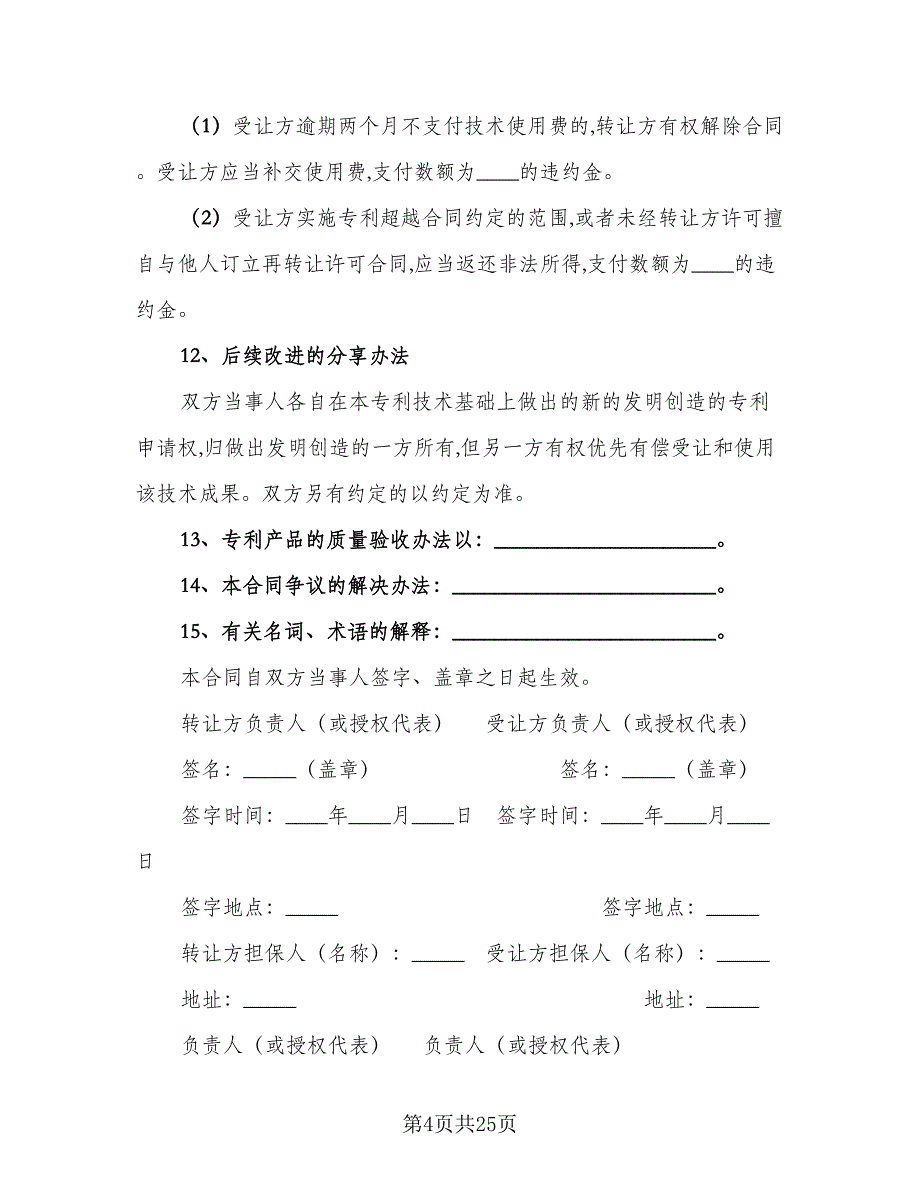 （1）受让方逾期两个月不支付技术使用费的,转让方有权解除合同
。受让方应当补交使用费,支付数额为____的违约金。
（2）受让方实施专利超越合同约定的范围,或者未经转让方许可擅
自与他人订立再转让许可合同,应当返还非法所得,支付数额为____的违
约金。
12、后续改进的分享办法
双方当事人各自在本专利技术基础上做出的新的发明创造的专利
申请权,归做出发明创造的一方所有,但另一方有权优先有偿受让和使用
该技术成果。双方另有约定的以约定为准。
13、专利产品的质量验收办法以：_____________________。
14、本合同争议的解决办法：_________________________。
15、有关名词、术语的解释：_________________________。
本合同自双方当事人签字、盖章之日起生效。
转让方负责人（或授权代表） 受让方负责人（或授权代表）
签名：_____（盖章） 签名：_____（盖章）
签字时间：____年____月____日 签字时间：____年____月____
日
签字地点：_____ 签字地点：_____
转让方担保人（名称）：_____ 受让方担保人（名称）：_____
地址：_____ 地址：_____
负责人（或授权代表） 负责人（或授权代表）
第4页共25页